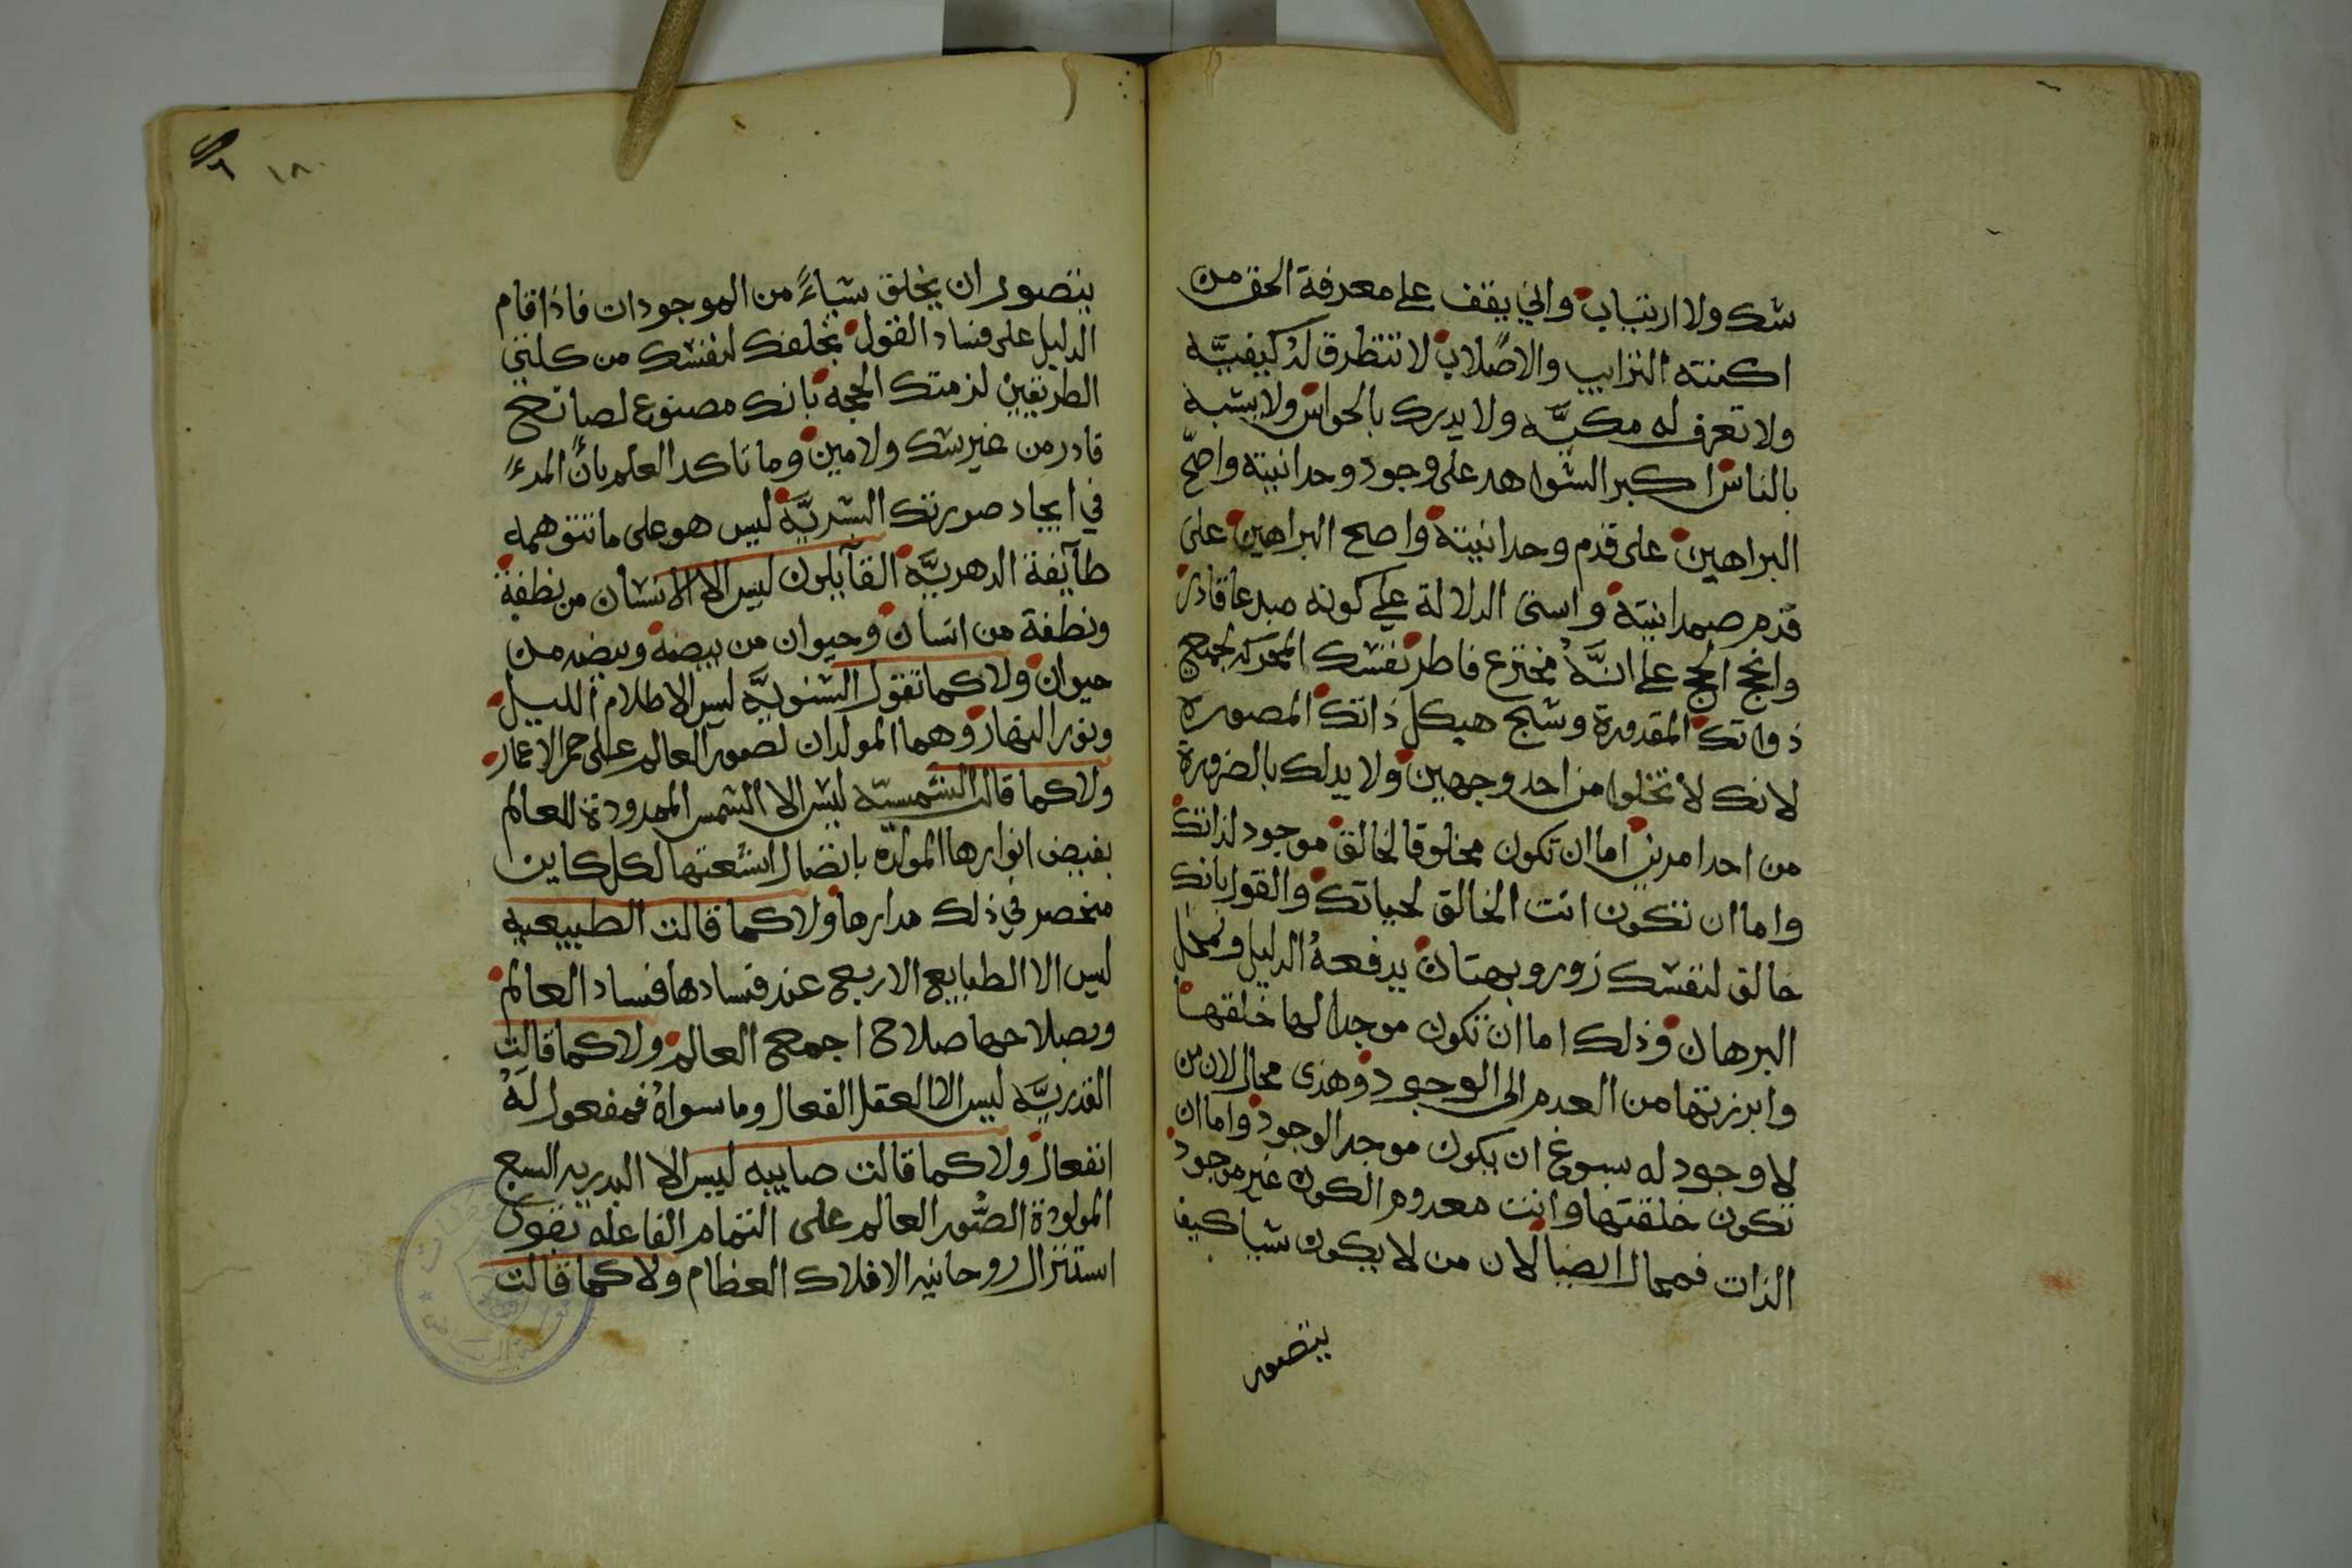 شك ولا ارتياب واني يقف على معرفة الحق من
اكنته الترايب والاصلاب لا تتطرق له كيفيَّه
ولا تعرف له مكيَّه ولا يدرك بالحواس ولا يشبه
بالناس اكبر الشواهد على وجود وحدانيته واصحّ
البراهين على قدم وحدانيته واصح البراهين على
قدم صمدانيته واسنى الدلالة على كونه مبدعا قادر
وانجح الحجج على انَّهُ مخترع فاطر نفسك المحركه لجميع
ذواتك المقدورة وشبح هيكل ذاتك المصورة
لانك لا تخلوا من احد وجهين ولا بد لك بالضرورة
من احد امرين اما ان تكون مخلوقا لخالق موجود لذاتك
واما ان تكون انت الخالق لحياتك والقول بانك
خالق لنفسك زور وبهتان يدفعهُ الدليل
البرهان وذلك اما ان تكون موجدا لها خلقتها
وابرزتها من العدم الى الوجود وهذى محال لان من
لا وجود له يسوغ ان يكون موجد الوجود واما ان
تكون خلقتها وانت معدوم الكون غير موجود
الذات فمحال ايضا لان من لا يكون شيا كيف
يتصور
١٨٠
يتصور ان يخلق شياءً من الموجودات فاذا قام
الدليل على فساد القول بخلقك لنفسك من كلتى
الطريقين لزمتك الحجه بانك مصنوع لصانع
قادر من غير شك ولا مين وما تاكد العلم بانَّ المدءً
في ايجاد صورتك البشريَّه ليس هو على ما تتوهمه
طآيفة الدهريَّه القآيلون ليس الا الانسان من نطفة
ونطفة من انسان وحيوان من بيضه وبيضه من
حيوان ولا كما تقول الثنويَّه ليس الا ظلام الليل
ونور النهار وهما المولدان لصور العالم على ممر الاعمار
ولا كما قالت الشمسيّه ليس الا الشمس الممدودة للعالم
بفيض انوارها المولدّه باتصال اشعتها لكل كاين
منحصر في ذلك مدارها ولا كما قالت الطبيعيه
ليس الا الطبايع الاربع عند فسادها فساد العالم
وبصلاحها صلاح اجمع العالم ولا كما قالت
القدريَّه ليس الا العقل الفعال وما سواهُ فمفعول لهُ
انفعال ولا كما قالت صابيه ليس الا البدريه السبع
المولودة الصُور العالم على التمام الفاعله بقوى
استنزال روحانيه الافلاك العظام ولا كما قالت